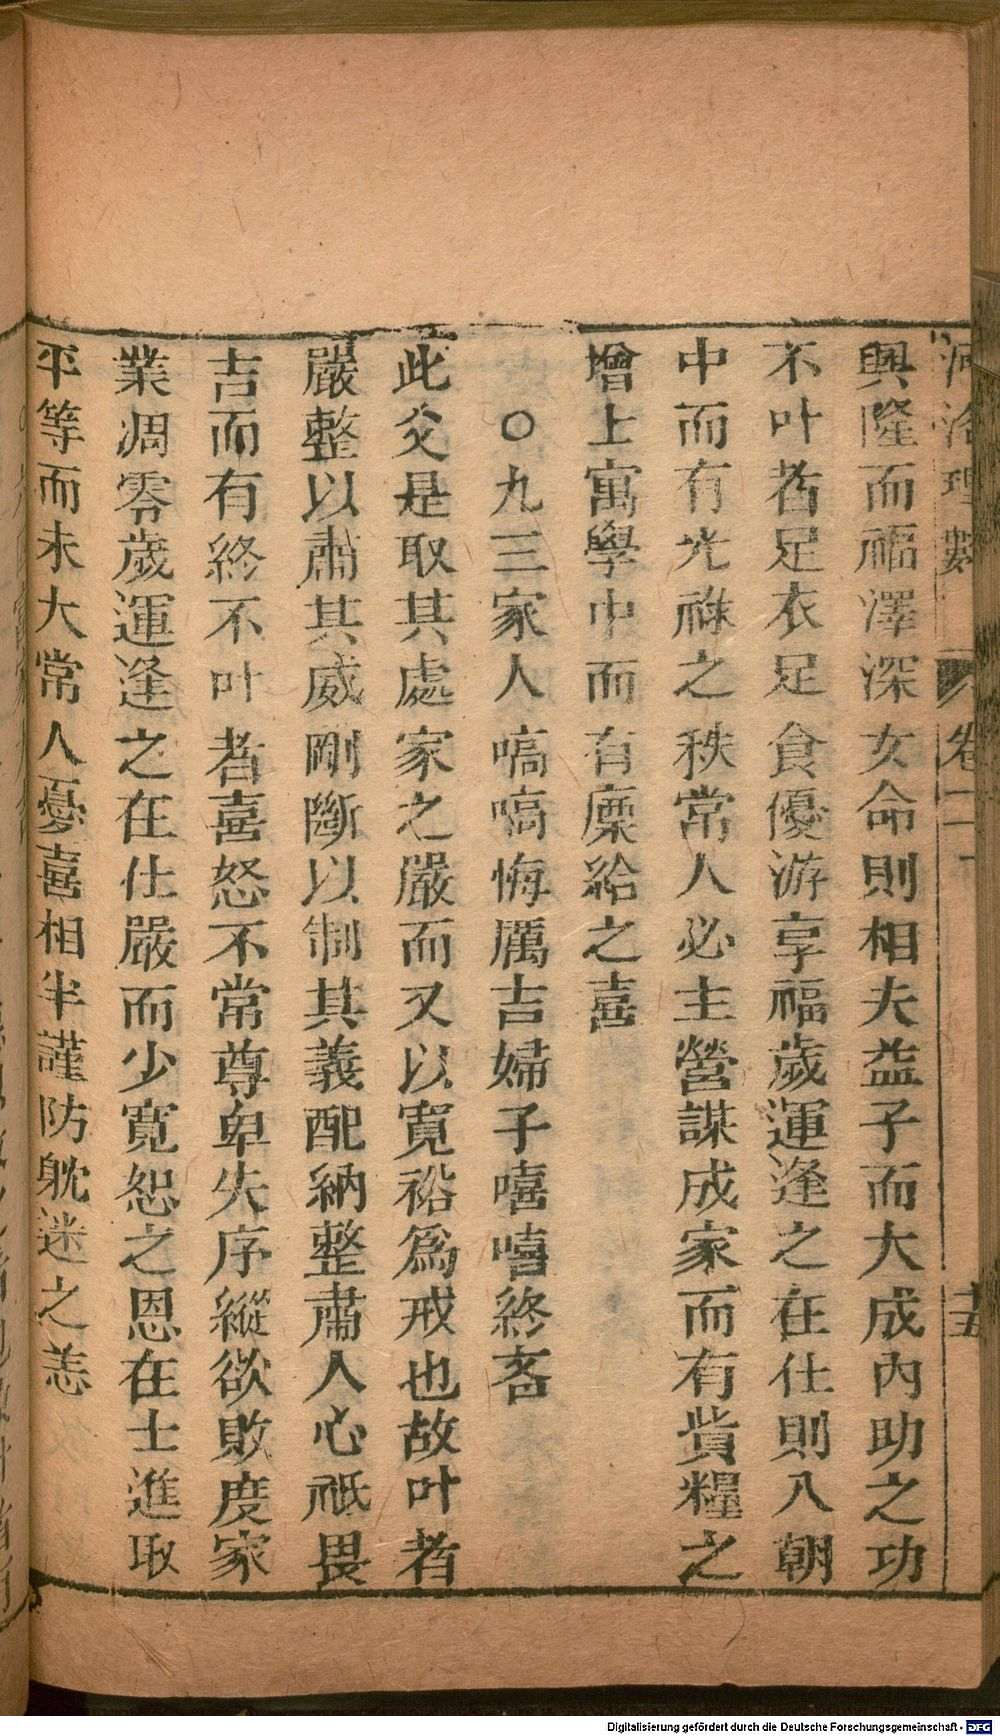 河洛理數 卷二下 十五
興隆而福澤深女命則相夫益子而大成內助之功
不叶者足衣足食優游享福歲運逢之在仕則入朝
中而有光祿之秩常人必主營謀成家而有貲糧之
增上寓學中而有廩給之喜
○九三家人嗃嗃悔厲吉婦子嘻嘻終吝
此爻是取其處家之嚴而又以寬裕爲戒也故叶者
嚴整以肅其威剛斷以制其義配納整肅人心祗畏
吉而有終不叶者喜怒不常尊卑失序縱欲敗度家
業凋零歲運逢之在仕嚴而少寬恕之恩在士進取
平等而未大常人憂喜相半謹防躭迷之恙
Digitalisierung gefördert durch die Deutsche Forschungsgemeinschaft - DFG